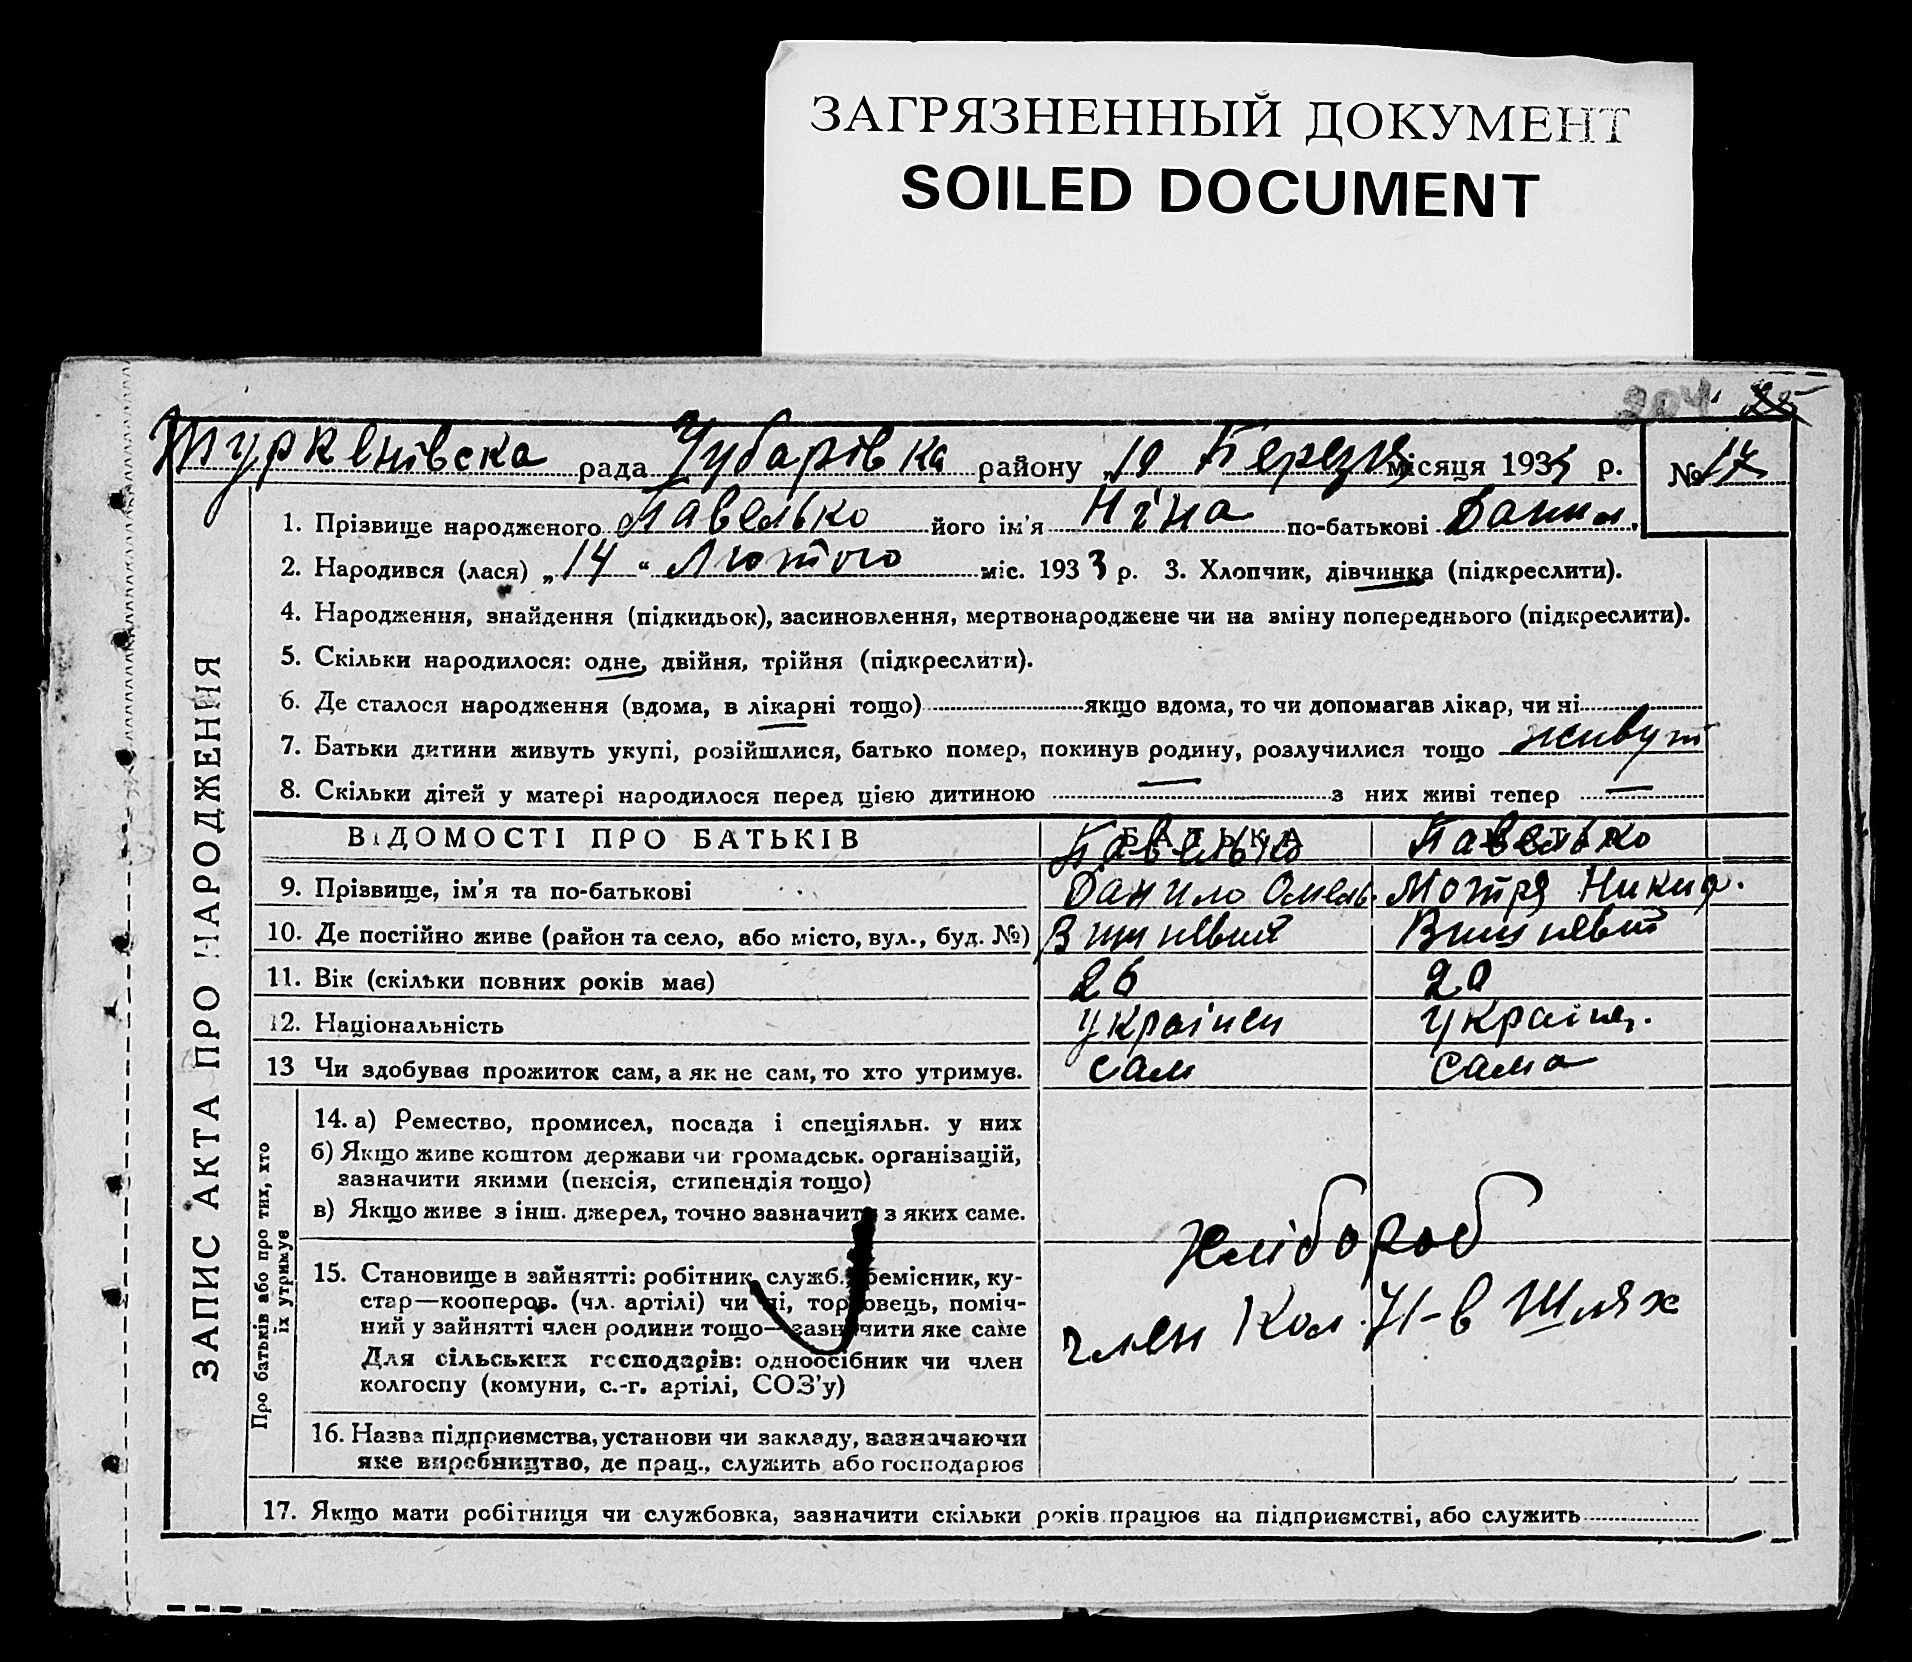 ЗАГРЯЗНЕННЫЙ ДОКУМЕНТ
SOILED DOCUMENT
Туркенівска рада Чубарівка району „10 Березня місяця 193 р. № 17
1. Прізвище народженого Павелько його ім'я Ніна по-батькові Данил.
2. Народився (лася) „14“ Лютого міс. 1933 р. 3. Хлопчик, дівчинка (підкреслити).
4. Народження, знайдення (підкидьок), засиновлення, мертвонароджене чи на зміну попереднього (підкреслити).
5. Скільки народилося: одне, двійня, трійня (підкреслити).
6. Де сталося народження (вдома, в лікарні тощо) якщо вдома, то чи допомагав лікар, чи ні
7. Батьки дитини живуть укупі, розійшлися, батько помер, покинув родину, розлучилися тощо живут
8. Скільки дітей у матері народилося перед цією дитиною — з них живі тепер —
ЗАПИС АКТА ПРО НАРОДЖЕННЯ
ВІДОМОСТІ ПРО БАТЬКІВ БАТЬКА
Павелько Павелько
9. Прізвище, ім'я та по-батькові Данило Омель. Мотря Никиф.
10. Де постійно живе (район та село, або місто, вул., буд. №) Вишневий Вишневий
11. Вік (скільки повних років має) 26 20
12. Національність Українец Українц.
13 Чи здобуває прожиток сам, а як не сам, то хто утримує. сам сама
Про батьків або про тих, хто їх утримує
14. а) Ремество, промисел, посада і спеціяльн. у них
б) Якщо живе коштом держави чи громадськ. організацій,
зазначити якими (пенсія, стипендія тощо)
в) Якщо живе з інш. джерел, точно зазначити з яких саме.
хлібороб
15. Становище в зайнятті: робітник, служб., ремісник, ку-
стар—кооперов. (чл. артілі) чи ні, торговець, поміч-
ний у зайнятті член родини тощо—зазначити яке саме
Для сільських господарів: одноосібник чи член
колгоспу (комуни, с.-г. артілі, СОЗ'у)
член Кол. Н-в Шлях
16. Назва підприємства, установи чи закладу, зазначаючи
яке виробництво, де прац., служить або господарює
17. Якщо мати робітниця чи службовка, зазначити скільки років працює на підприємстві, або служить